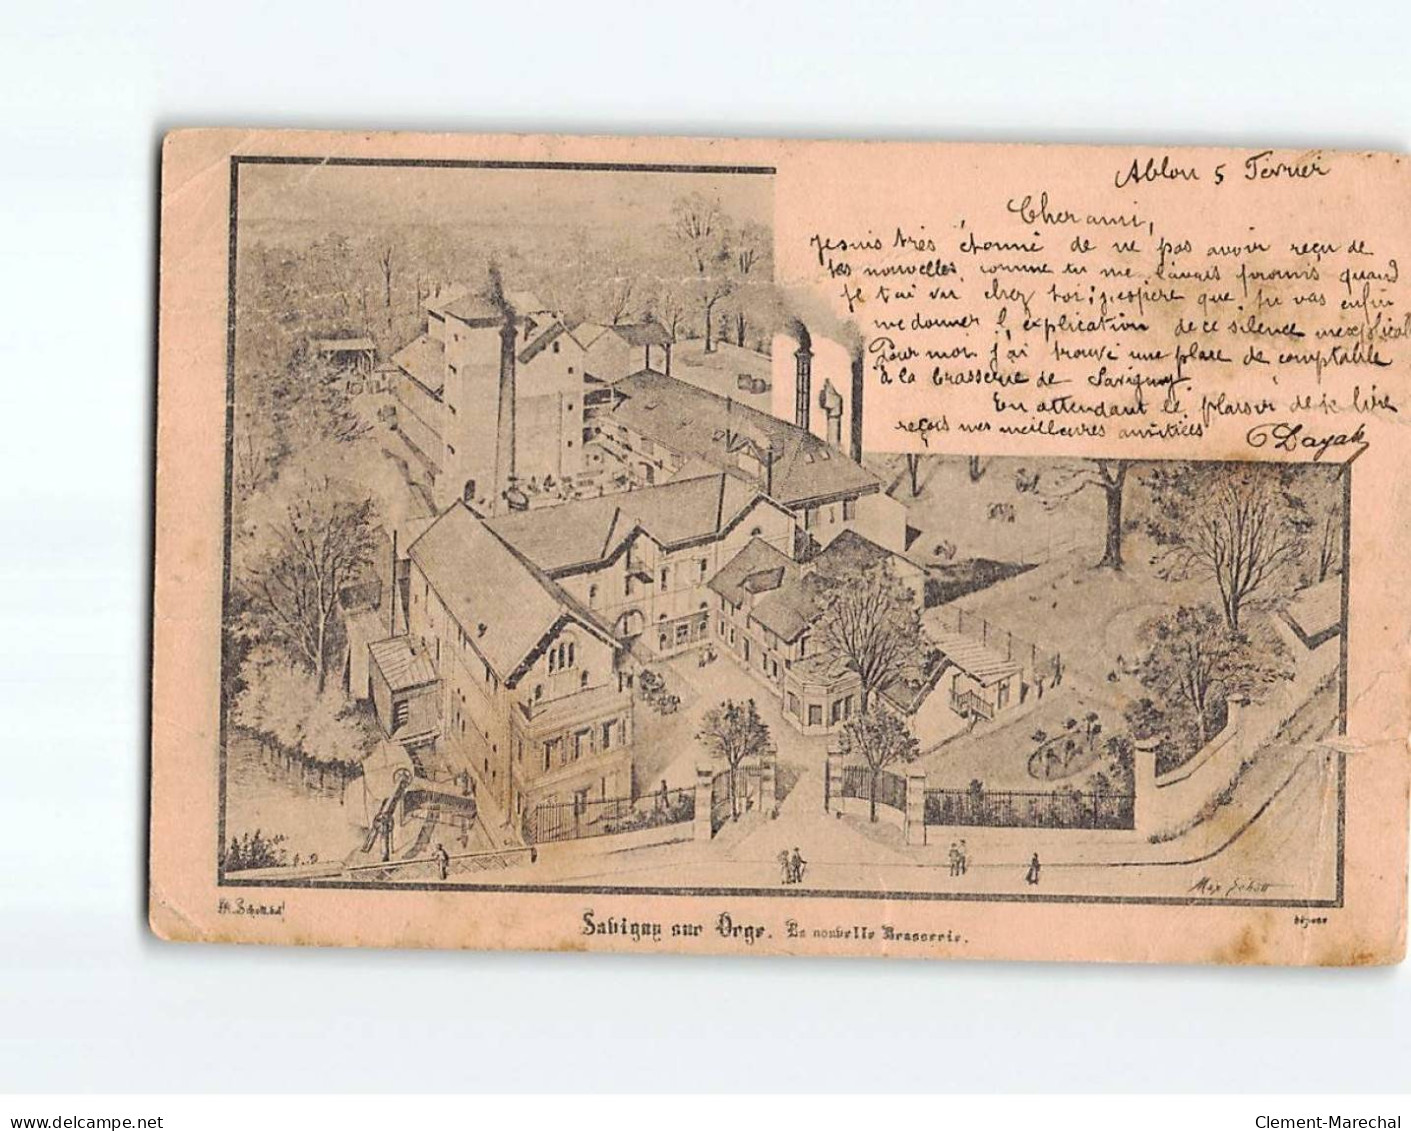 Ablon 5 Février
Cher ami,
Je suis très étonné de ne pas avoir reçu de
tes nouvelles, comme tu me l'avais promis quand
je t'ai vu chez toi; j'espère que tu vas enfin
me donner l'explication de ce silence inexplicable
Pour moi j'ai trouvé une place de comptable
à la brasserie de Savigny.
En attendant le plaisir de te lire
reçois mes meilleures amitiés
Max Schott
M. Schott, éd.
Savigny sur Orge. La nouvelle Brasserie.
déposé
www.delcampe.net
Clement-Marechal